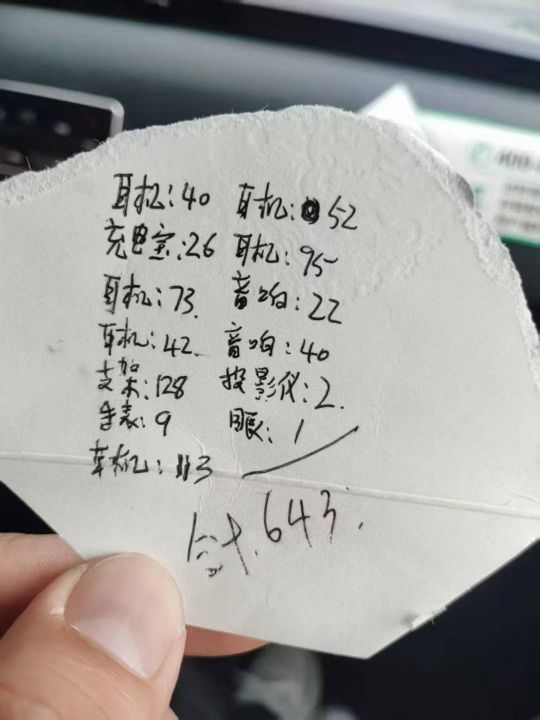 耳机:40 耳机:52
充电宝:26 耳机:95
耳机:73. 音响:22
耳机:42. 音响:40
支架:128 投影仪:2.
手表:9 :1
耳机:113
合计.643.